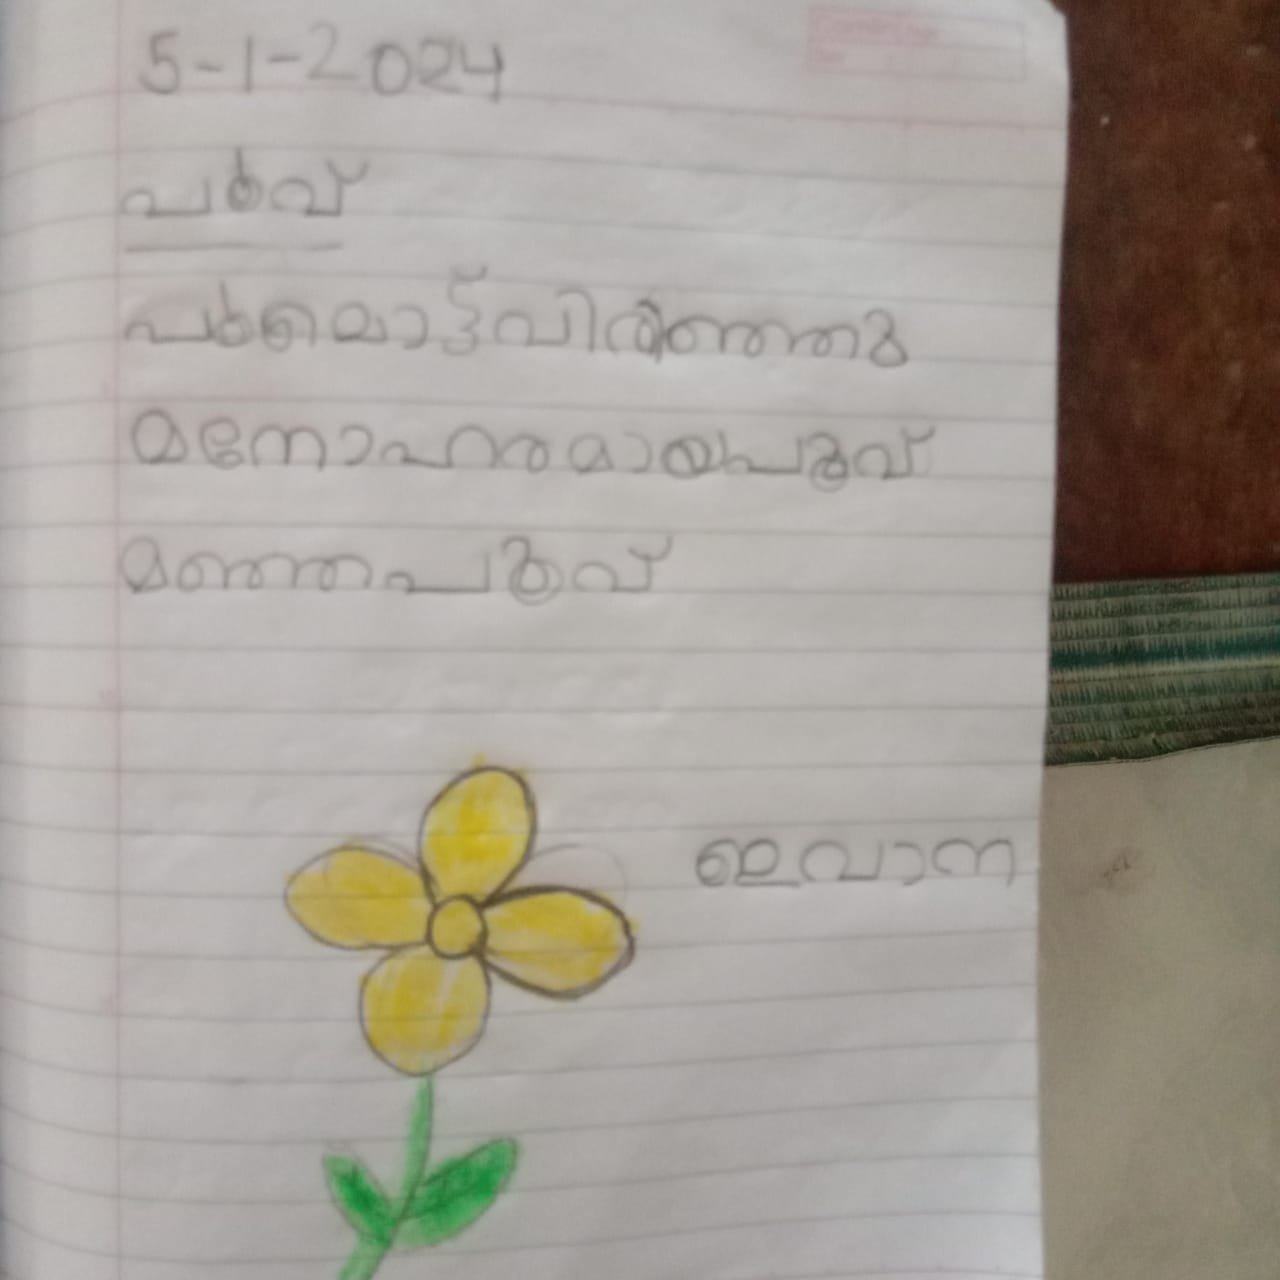 5-1-2024
പൂവ്
പൂമൊട്ട് വിരിഞ്ഞു
മനോഹരമായപൂവ്
മഞ്ഞപൂവ്
ഇവാന